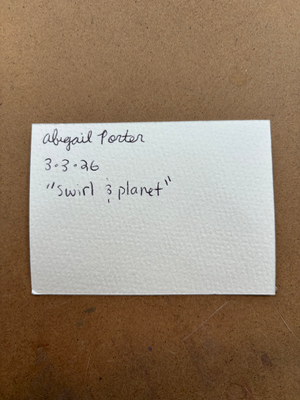 Abigail Porter
3.3.26
"swirl & planet"